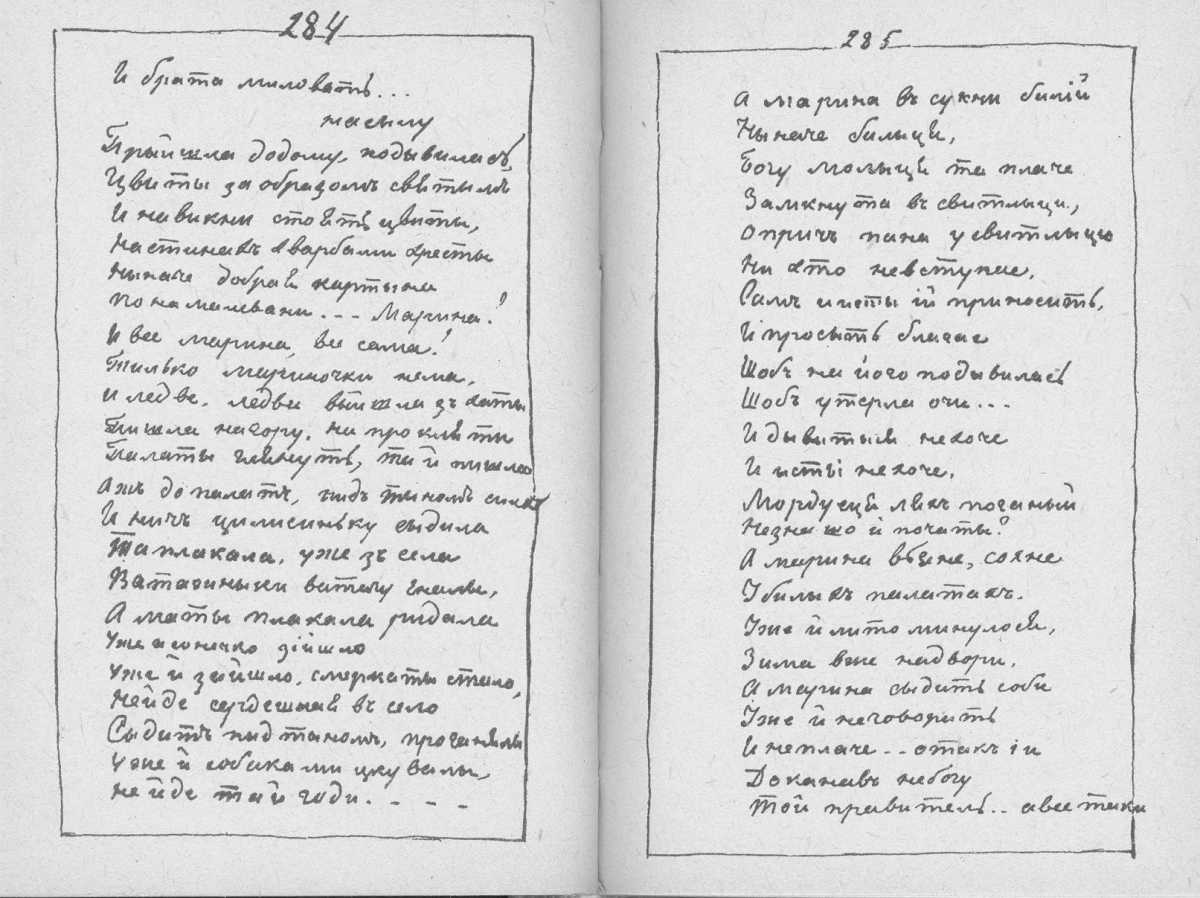 284
И брата миловать...
насылу
Прыйшла додому, подывилась,
Цвиты за образомъ свѣтымъ
И навикни стоѣть цвиты,
Настинахъ хварбами хресты
Ныначе добраѣ картына
Понамалевани... Марина!
И все марина, все сама!
Тилько мариночки нема.
И ледве, ледве выйшла зъ хаты
Пишла нагору, на проклѣти
Палаты глѣнуть, тай пишла
Ажъ до палатъ, пидъ тыномъ сила
И ничъ цилисиньку сыдила
Та плакала, уже зъ села
Ватагиныки ватагу гналы,
А маты плакала рыдала
Уже и сонечко зійшло
Уже й зайшло, смеркаты стало,
Нейде сердешнаѣ въ село
Сыдить пид тыномъ, проганѣлы
Уже й собаками цкувалы,
Нейде тай годи. - - -
285
А марина въ сукни билій
Ныначе билыцѣ,
Богу молыцѣ та плаче
Замкнута въ свитлыци,
Опричъ пана у свитлыцю
Ни хто невступае,
Самъ и исты ій приносить,
И просыть благае
Щобъ на його подывилась
Щобъ утерла очи...
И дывитыѣ нехоче
И исты нехоче.
Мордуецѣ лѣхъ поганый
Незна шо й початы?
А марина вѣэне, сохне
У билыхъ палатахъ.
Уже й лито минулосѣ,
Зима вже надвори,
А марина сыдить соби
Уже й неговорить
И неплаче.. отакъ іи
Доканавъ небогу
Той правитель.. а все таки